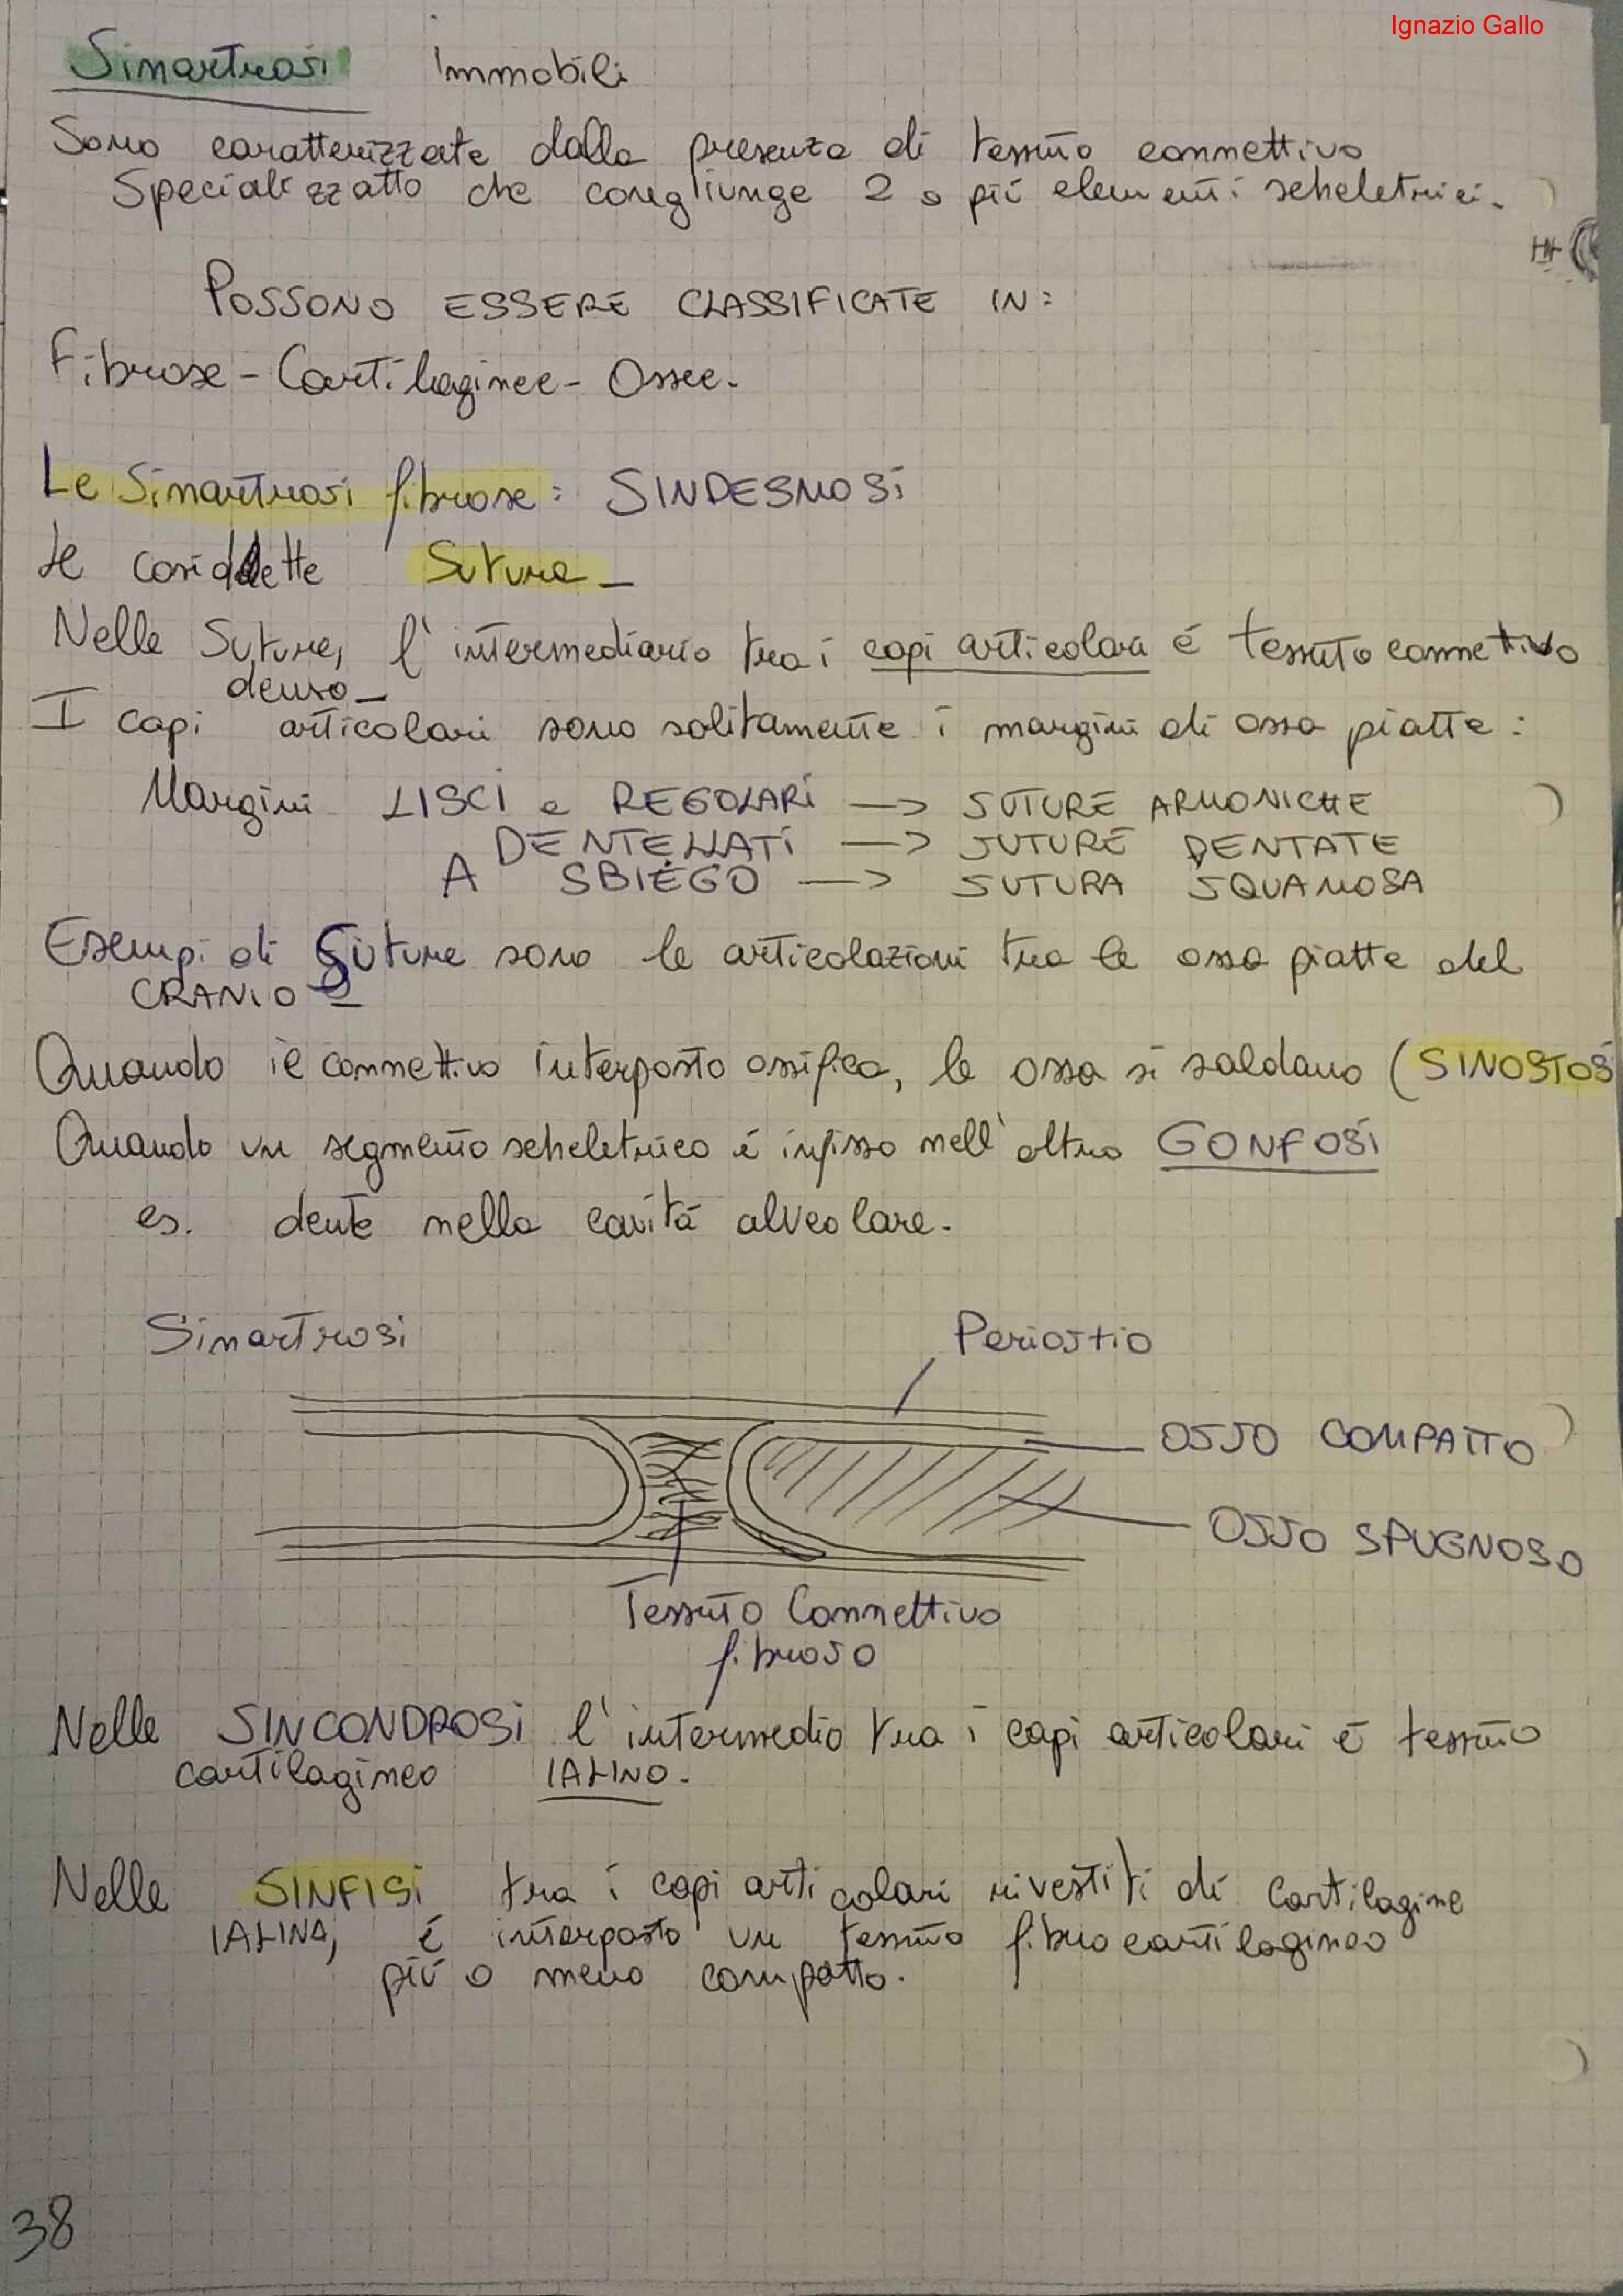 Ignazio Gallo
Sinartrosi Immobili
Sono caratterizzate dalla presenza di tessuto connettivo
Specializzatto che congiunge 2 o più elementi scheletrici.
POSSONO ESSERE CLASSIFICATE IN:
Fibrose - Cartilaginee - Ossee.
Le Sinartrosi fibrose: SINDESMOSI
Le cosiddette Suture -
Nelle Suture, l'intermediario tra i capi articolari é tessuto connettivo
denso -
I capi articolari sono solitamente i margini di ossa piatte:
Margini LISCI e REGOLARI —> SUTURE ARMONICHE
DENTELLATI —> SUTURE DENTATE
A SBIEGO —> SUTURA SQUAMOSA
Esempi di Suture sono le articolazioni tra le ossa piatte del
CRANIO -
Quando il connettivo interposto ossifica, le ossa si saldano (SINOSTOSI
Quando un segmento scheletrico é infisso nell'altro GONFOSI
es. dente nella cavità alveolare.
Sinartrosi
Periostio
OSSO COMPATTO
OSSO SPUGNOSO
Tessuto Connettivo
fibroso
Nelle SINCONDROSI l'intermedio tra i capi articolari é tessuto
cartilagineo IALINO.
Nelle SINFISI tra i capi articolari rivestiti di Cartilagine
IALINA, é interposto un tessuto fibrocartilagineo
più o meno compatto.
38